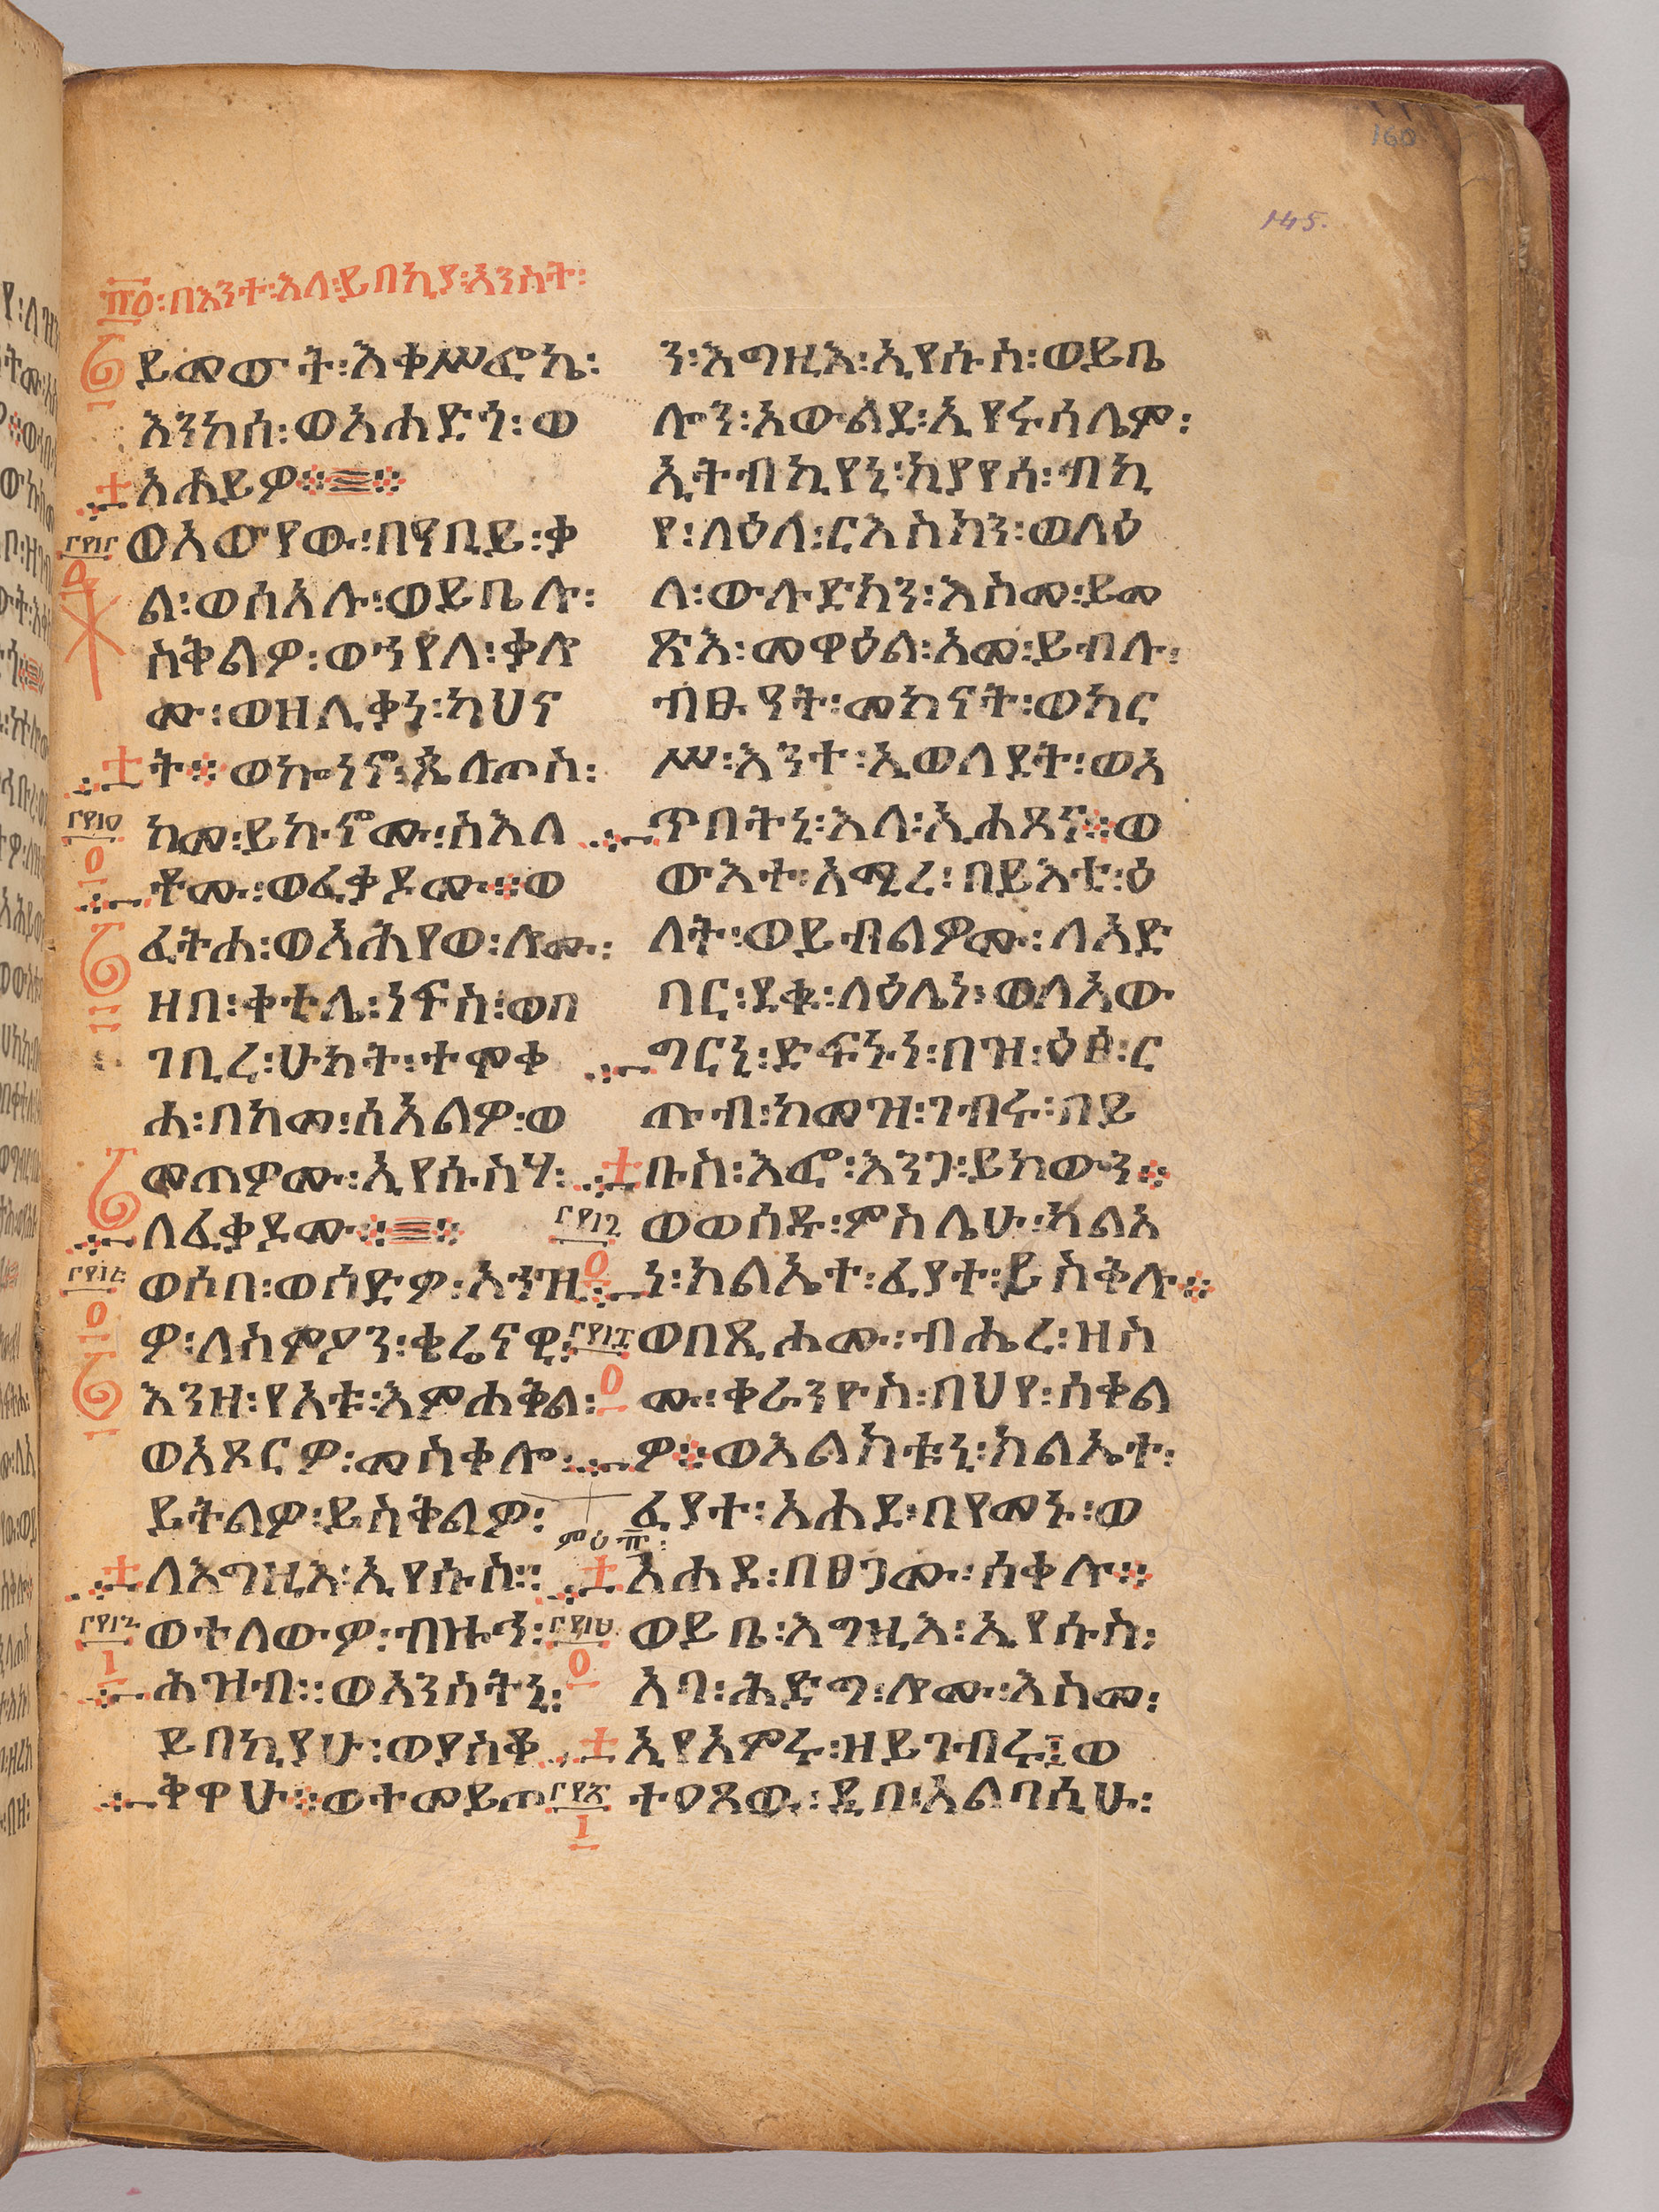 160
145.
፹፩፡በእንተ፡እለ፡ይበኪያ፡አንስት፡
ይመውት፡እቀሥፎኬ፡
እንከሰ፡ወእሐድጎ፡ወ
አሐይዎ፨
ወአውየው፡በዓቢይ፡ቃ
ል፡ወሰአሉ፡ወይቤሉ፡
ስቅልዎ፡ወኀየለ፡ቃሎ
ሙ፡ወዘሊቃነ፡ካህና
ት፨ወኰነኖ፡ጲላጦስ፡
ከመ፡ይኩኖሙ፡ስእለ
ቶሙ፡ወፈቃዶሙ፨ወ
ፈትሐ፡ወአሕየወ፡ሎሙ፡
ዘበ፡ቀቲለ፡ነፍስ፡ወበ
ገቢረ፡ሁከት፡ተሞቀ
ሐ፡በከመ፡ሰአልዎ፡ወ
መጠዎሙ፡ኢየሱስሃ፡
ለፈቃዶሙ፨
ወሶበ፡ወሰድዎ፡አኀዝ
ዎ፡ለስምዖን፡ቄሬናዊ፡
እንዘ፡የአቱ፡እምሐቅል፡
ወአጾርዎ፡መስቀሎ፡
ይትልዎ፡ይስቅልዎ፡
ለእግዚእ፡ኢየሱስ።
ወተለውዎ፡ብዙኅ፡
ሕዝብ፡፡ወአንስትኒ፡
ይበኪያሁ፡ወያስቆ
ቅዋሁ፨ወተመይጦ
ን፡እግዚእ፡ኢየሱስ፡ወይቤ
ሎን፡አውልደ፡ኢየሩሳሌም፡
ኢትብኪየኒ፡ኪያየሰ፡ብኪ
የ፡ለዕለ፡ርእስክን፡ወለዕ
ለ፡ውሉድክን፡እስመ፡ይመ
ጽእ፡መዋዕል፡አመ፡ይብሉ፡
ብፁዓት፡መከናት፡ወከር
ሥ፡እንተ፡ኢወለደት፡ወአ
ጥበትኒ፡እለ፡ኢሐፀና፨ወ
ውእተ፡አሚረ፡በይእቲ፡ዕ
ለት፡ወይብልዎሙ፡ለአድ
ባር፡ደቁ፡ለዕሌነ፡ወለአው
ግርኒ፡ድፍኑነ፡በዝ፡ዕፅ፡ር
ጡብ፡ከመዝ፡ገብሩ፡በይ
ቡስ፡እፎ፡እንጋ፡ይከውን፨
ወወሰዱ፡ምስሌሁ፡ካልአ
ነ፡ክልኤተ፡ፈያተ፡ይስቅሉ፨
ወበጺሖሙ፡ብሔረ፡ዘስ
ሙ፡ቀራንዮስ፡በህየ፡ሰቀል
ዎ፨ወእልክቱኒ፡ክልኤተ፡
ፈያተ፡አሐደ፡በየመኑ፡ወ
አሐደ፡በፀጋሙ፡ሰቀሉ፨
ወይቤ፡እግዚእ፡ኢየሱስ፡
አባ፡ሕድግ፡ሎሙ፡እስመ፡
ኢየአምሩ፡ዘይገብሩ፤ወ
ተዐጸዉ፡ዲበ፡አልባሲሁ፡